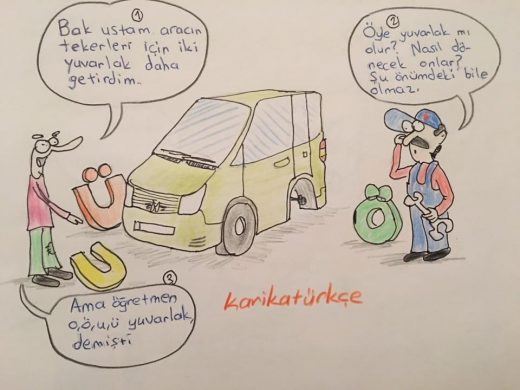 1
Bak ustam aracın
tekerleri için iki
yuvarlak daha
getirdim..
2
Öğe yuvarlak mı
olur? Nasıl dö-
necek onlar?
Şu önümdeki bile
olmaz.
Ü
U
Ö
3
Ama öğretmen
o,ö,u,ü yuvarlak,
demişti
karikatürkçe